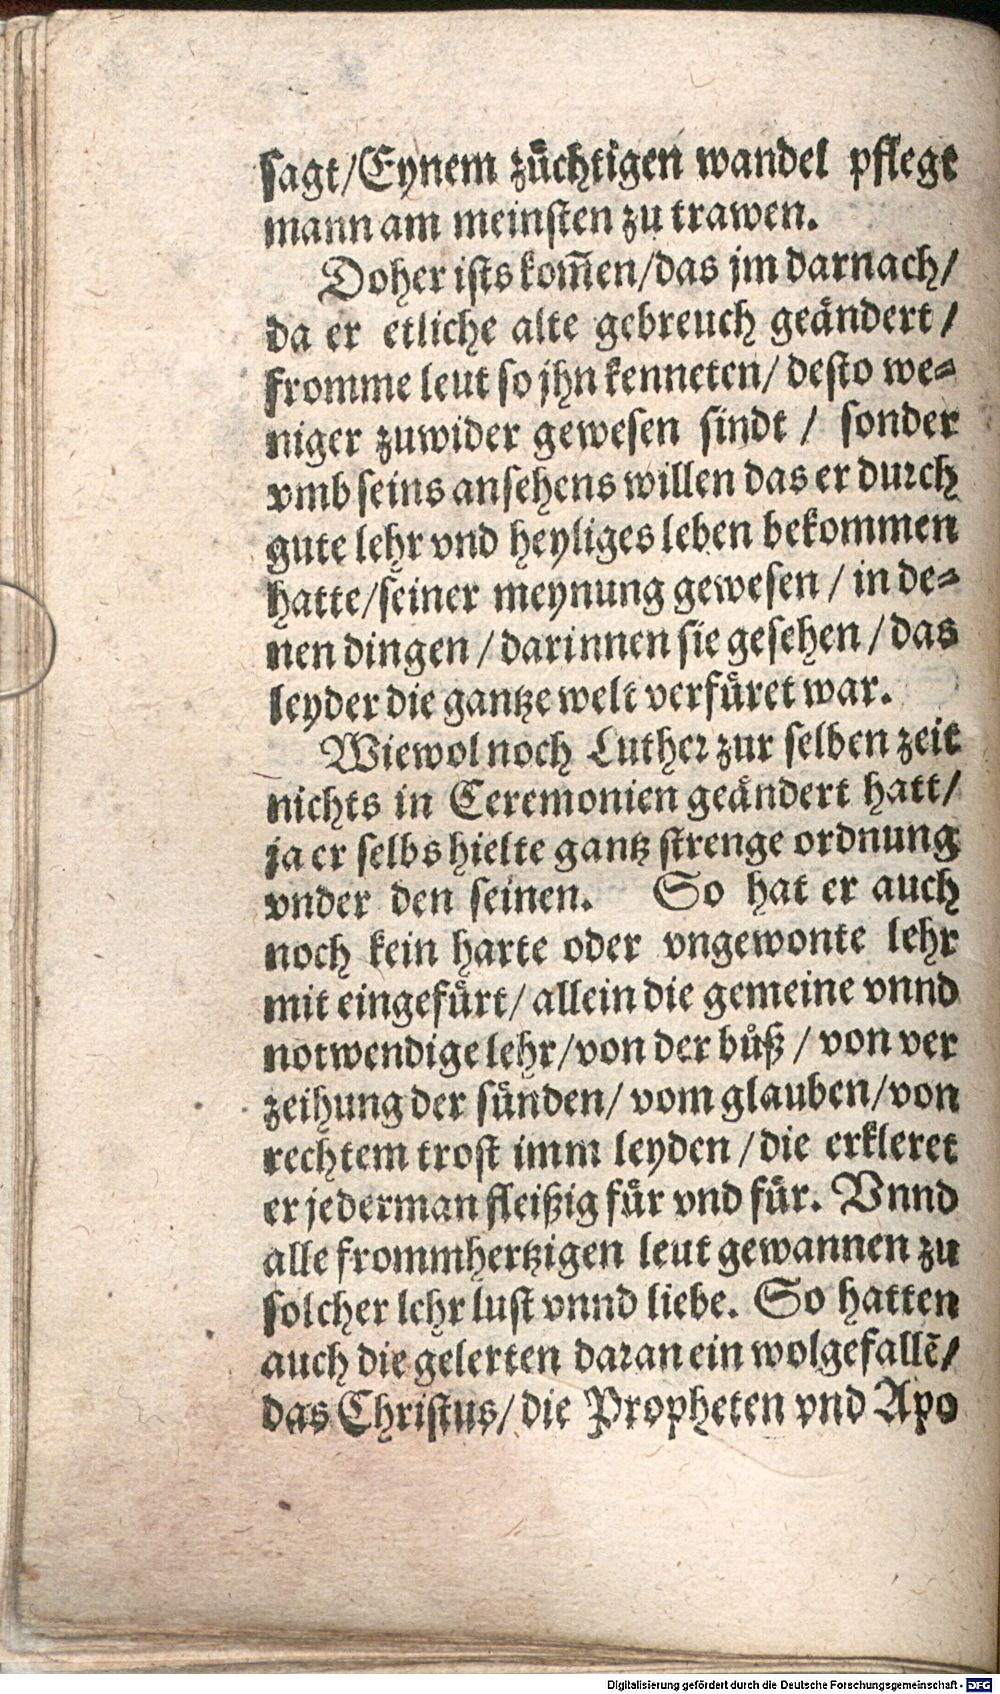 sagt/Eynem zuͤchtigen wandel pflegt
mann am meinsten zu trawen.
Doher ists kom̃en/das jm darnach/
da er etliche alte gebreuch geaͤndert/
fromme leut so jhn kenneten/ desto we-
niger zuwider gewesen sindt / sonder
vmb seins ansehens willen das er durch
gute lehr vnd heyliges leben bekommen
hatte/seiner meynung gewesen / in de-
nen dingen / darinnen sie gesehen / das
leyder die gantze welt verfuͤret war.
Wiewol noch Luther zur selben zeit
nichts in Ceremonien geaͤndert hatt/
ja er selbs hielte gantz strenge ordnung
vnder den seinen. So hat er auch
noch kein harte oder vngewonte lehr
mit eingefuͤrt/ allein die gemeine vnnd
notwendige lehr/von der buͦß / von ver
zeihung der suͤnden/ vom glauben/von
rechtem trost imm leyden /die erkleret
er jederman fleißig fuͤr vnd fuͤr. Vnnd
alle frommhertzigen leut gewannen zu
solcher lehr lust vnnd liebe. So hatten
auch die gelerten daran ein wolgefallẽ/
das Christus/ die Propheten vnd Apo
Digitalisierung gefördert durch die Deutsche Forschungsgemeinschaft - DFG